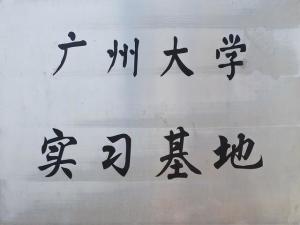 广州大学
实习基地